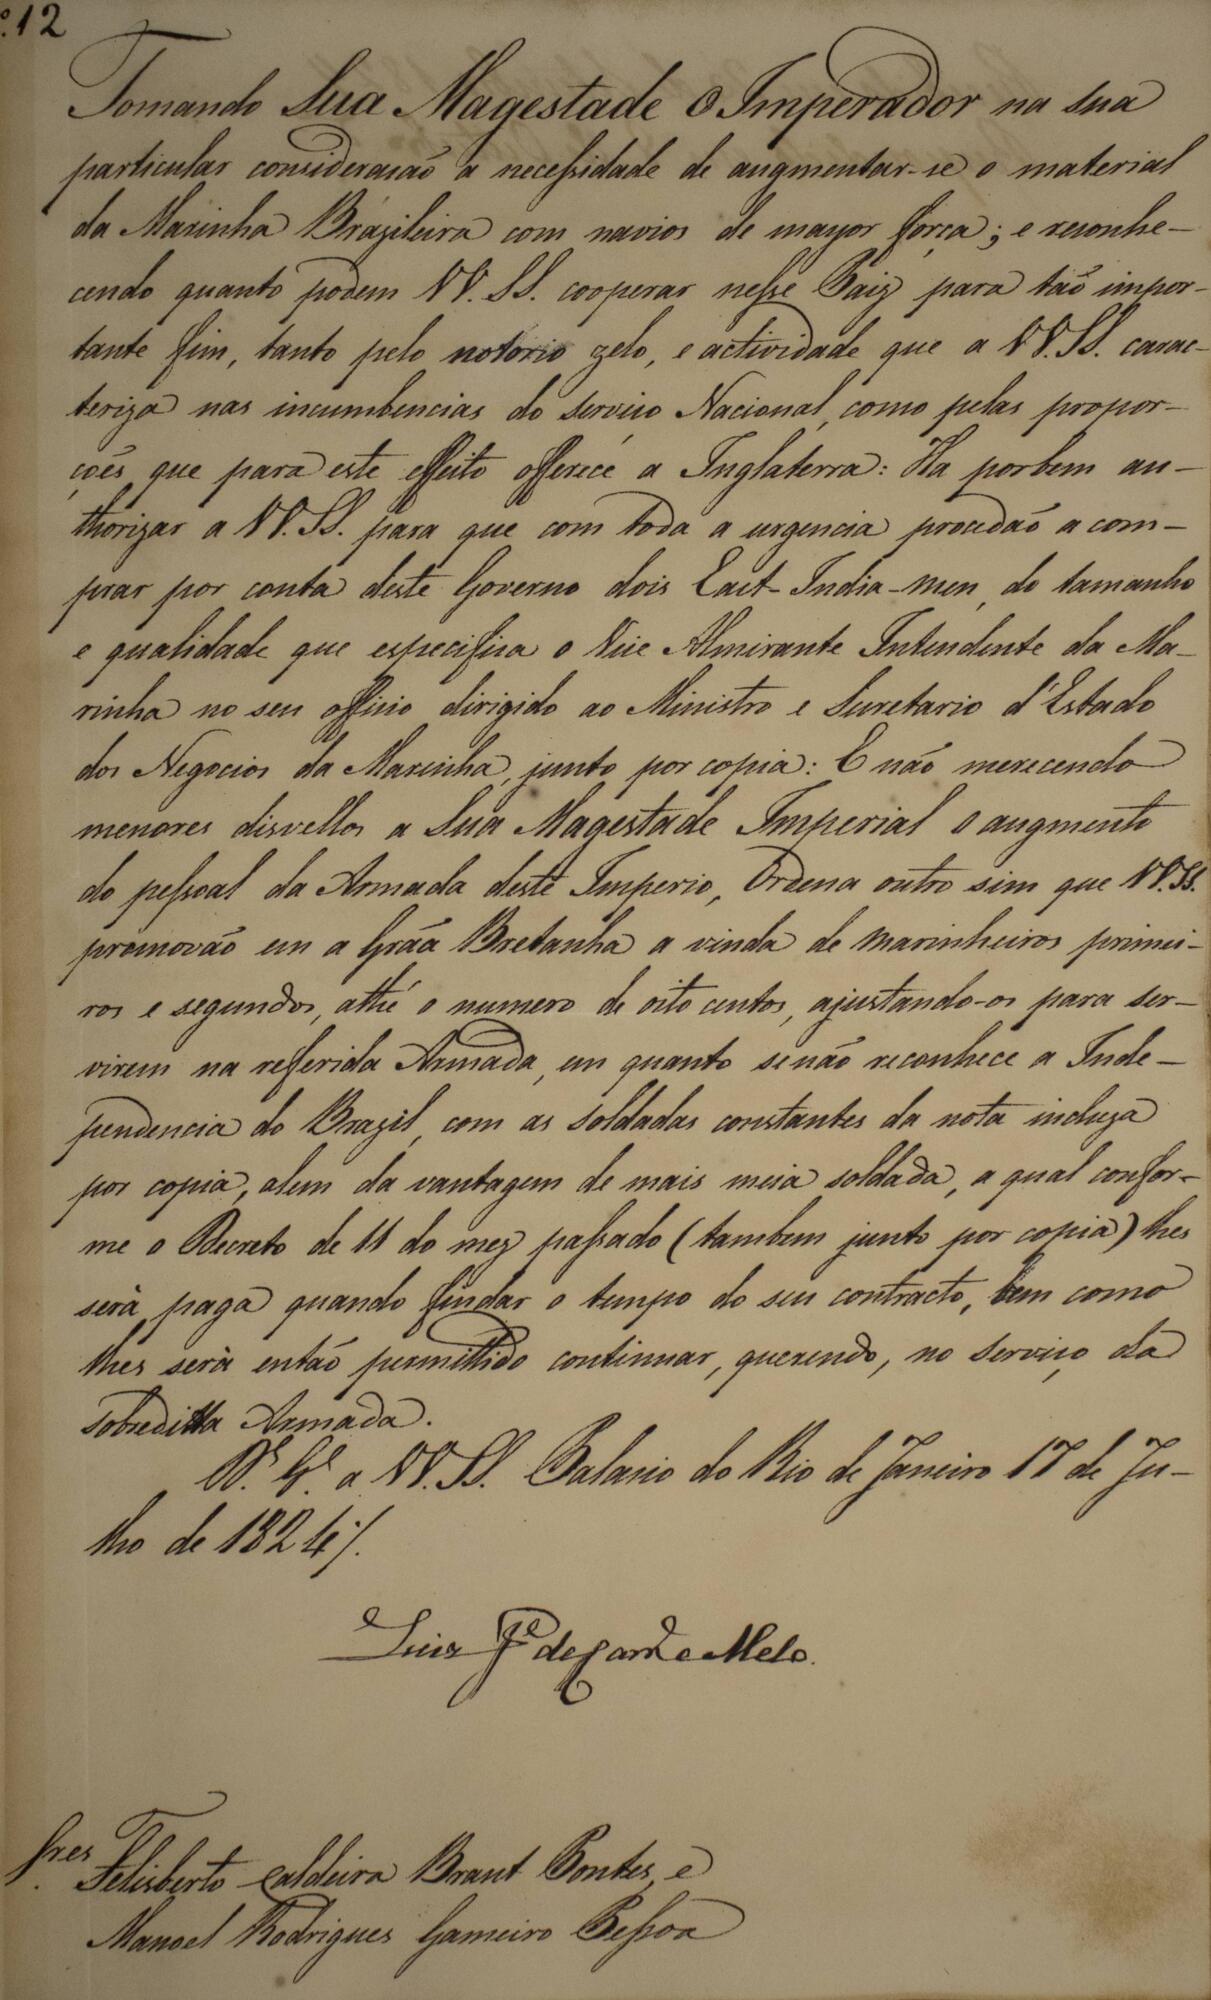 º. 12
Tomando Sua Magestade O Imperador na sua
particular consideração a necessidade de augmentar-se o material
da Marinha Brazileira com navios de mayor força; e reconhe-
cendo quanto podem VV. SS. cooperar nesse Paiz para tão impor-
tante fim, tanto pelo notorio zelo, e actividade que a VV. SS. carac-
teriza nas incumbencias do serviço Nacional, como pelas propor-
ções que para este effeito offerece a Inglaterra: Ha por bem au-
thorizar a VV. SS. para que com toda a urgencia procedão a com-
prar por conta deste Governo dois East-India-men, do tamanho
e qualidade que especifica o Vice Almirante Intendente da Ma-
rinha no seu officio dirigido ao Ministro e Secretario d'Estado
dos Negocios da Marinha, junto por copia: E não merecendo
menores disvellos a Sua Magestade Imperial o augmento
do pessoal da Armada deste Imperio, Ordena outro sim que VV. SS.
promovão em a Grãa Bretanha a vinda de marinheiros primei-
ros e segundos, athé o numero de oito centos, ajustando-os para ser-
virem na referida Armada, em quanto se não reconhece a Inde-
pendencia do Brazil, com as soldadas constantes da nota incluza
por copia, alem da vantagem de mais meia soldada, a qual confor-
me o Decreto de 11 do mez passado (tambem junto por copia) lhes
será paga quando findar o tempo do seu contracto, bem como
lhes será então permittido continuar, querendo, no serviço da
sobreditta Armada.
Ds. Ge. a VV. SS. Palacio do Rio de Janeiro 17 de Ju-
lho de 1824./.
Luiz Je. de Carvo. e Melo.
Snres. Felisberto Caldeira Brant Pontes, e
Manoel Rodrigues Gameiro Pessoa